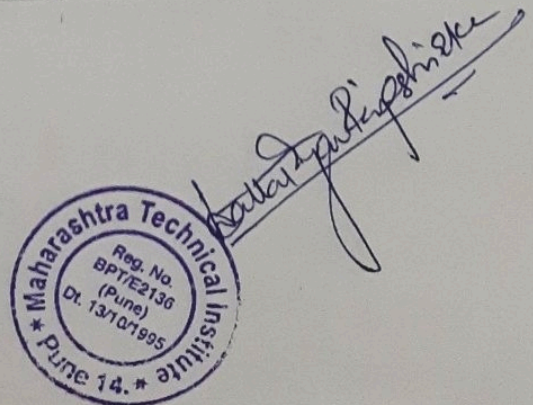 Maharashtra Technical Institute
* Pune 14. *
Reg. No.
BPT/E2136
(Pune)
Dt. 13/10/1995